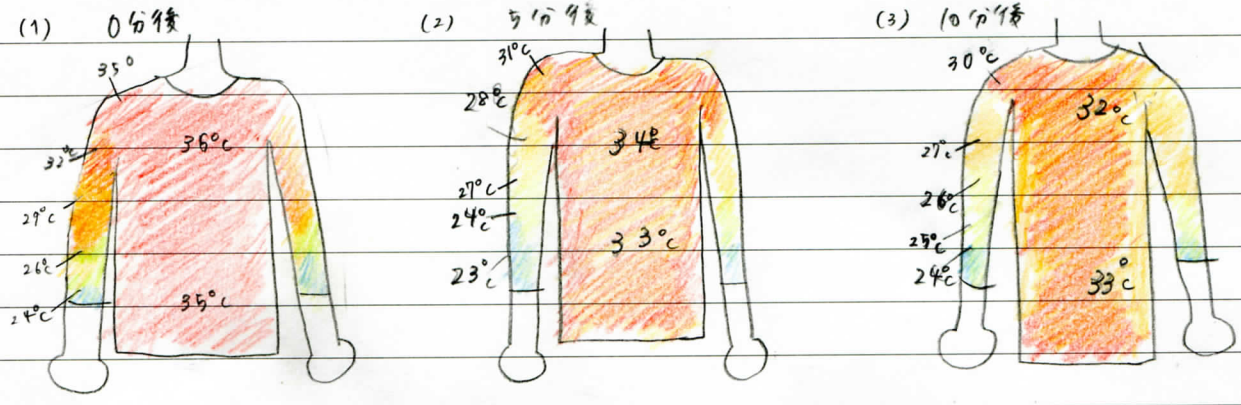 (1) 0分後
35°
36°C
32°C
29°C
26°C
24°C
35°C
(2) 5分後
31°C
28°C
34°C
27°C
24°C
33°C
23°C
(3) 10分後
30°C
32°C
27°C
26°C
25°C
24°C
33°C